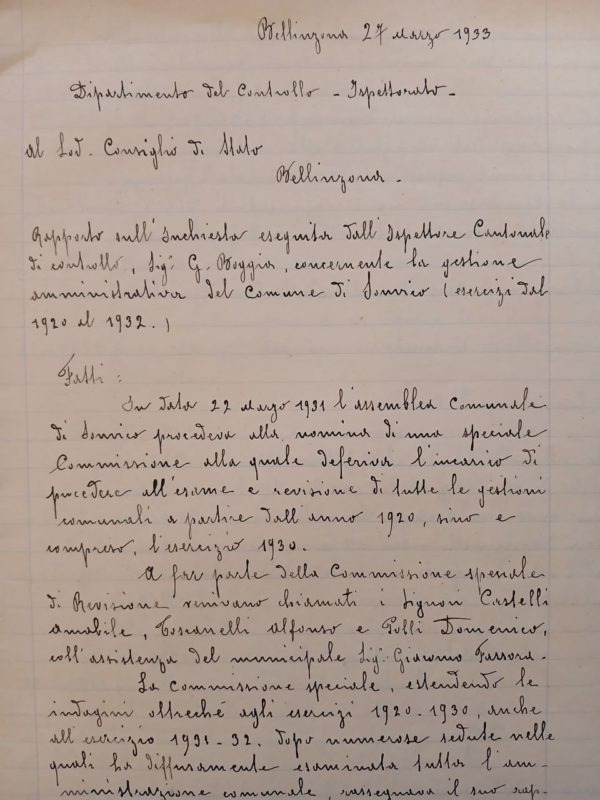 Bellinzona 27 Marzo 1933
Dipartimento del Controllo - Ispettorato -
al Lod. Consiglio di Stato
Bellinzona -
Rapporto sull'Inchiesta eseguita dall'Ispettore Cantonale
di controllo, Sig. G. Boggia, concernente la gestione
amministrativa del Comune di Sonvico (esercizi dal
1920 al 1932.)
Fatti :
In data 22 Marzo 1931 l'assemblea comunale
di Sonvico procedeva alla nomina di una speciale
Commissione alla quale deferiva l'incarico di
procedere all'esame e revisione di tutte le gestioni
comunali a partire dall'anno 1920, sino e
compreso, l'esercizio 1930.
A far parte della Commissione speciale
di Revisione venivano chiamati i Signori Castelli
Amabile, Toscanelli Alfonso e Polli Domenico,
coll'assistenza del municipale Sig. Giacomo Fassora -
La Commissione speciale, estendendo le
indagini oltreché agli esercizi 1920-1930, anche
all'esercizio 1931-32. Dopo numerose sedute nelle
quali ha diffusamente esaminata tutta l'am-
ministrazione comunale, rassegnava il suo rap-